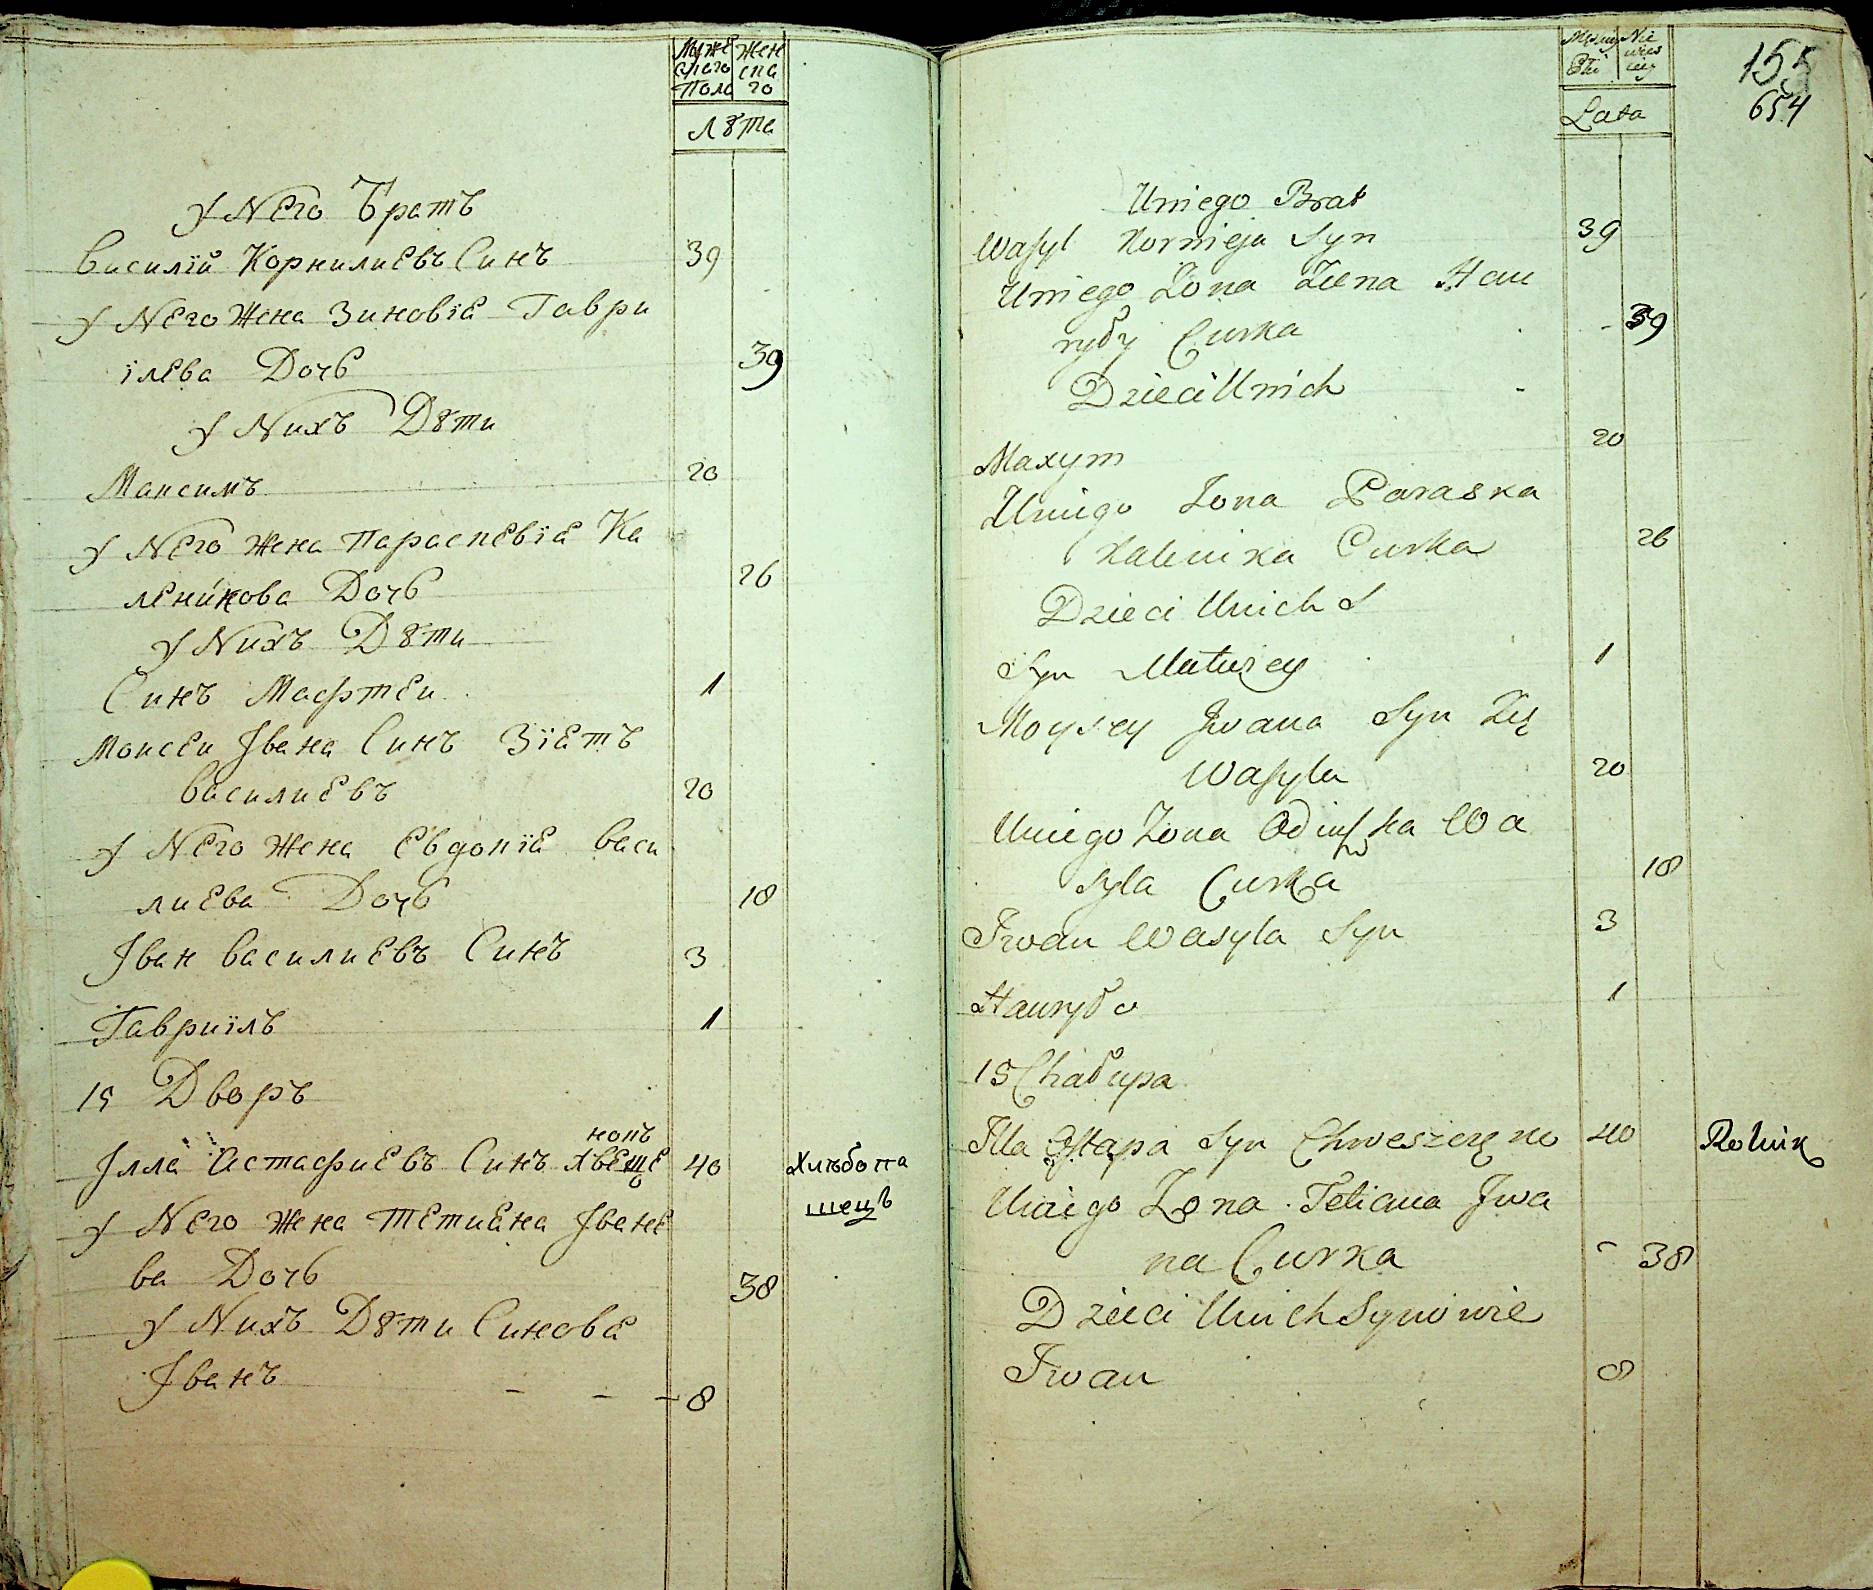 Мужескаго Пола
Женскаго
Лѣта
У Него Братъ
Василій Корнилиевъ Синъ 39
У Него Жена Зиновіе Гаври
ілева Дочь 39
У Нихъ Дѣти
Максимъ 20
У Него жена Параскевіе Ка
леникова Дочь 26
У Нихъ Дѣти
Синъ Мафтеи 1
Моисеи Івана Синъ Зіетъ
Василиевъ 20
У Него жена Евдокіе Васи
лиева Дочь 18
Іван Василиевъ Синъ 3
Гавриілъ 1
15 Дворъ
нокъ
Ілле Астафиевъ Синъ Хвеще 40 Хлѣбопа
шецъ
У Него жена Тетиена Івано
ва Дочь 38
У Нихъ Дѣти Синове
Іванъ - - - 8
155
654
Lata
Uniego Brat
Wasyl Kornieja Syn 39
Uniego Zona Ziena Haw
ryły Curka 39
Dzieci Unich
Maxym 20
Uniego Zona Paraska
Kalenika Curka 26
Dzieci Unich
Syn Matwey 1
Moysey Jwana Syn Zię
Wasyla 20
Uniego Zona Wa
syla Curka 18
Iwan Wasyla Syn 3
Hawryło 1
15 Chałupa
Illa Ostapa Syn 40 Rolnik
Uniego Zona Tetiana Jwa
na Curka 38
Dzieci Unich Synowie
Iwan 8